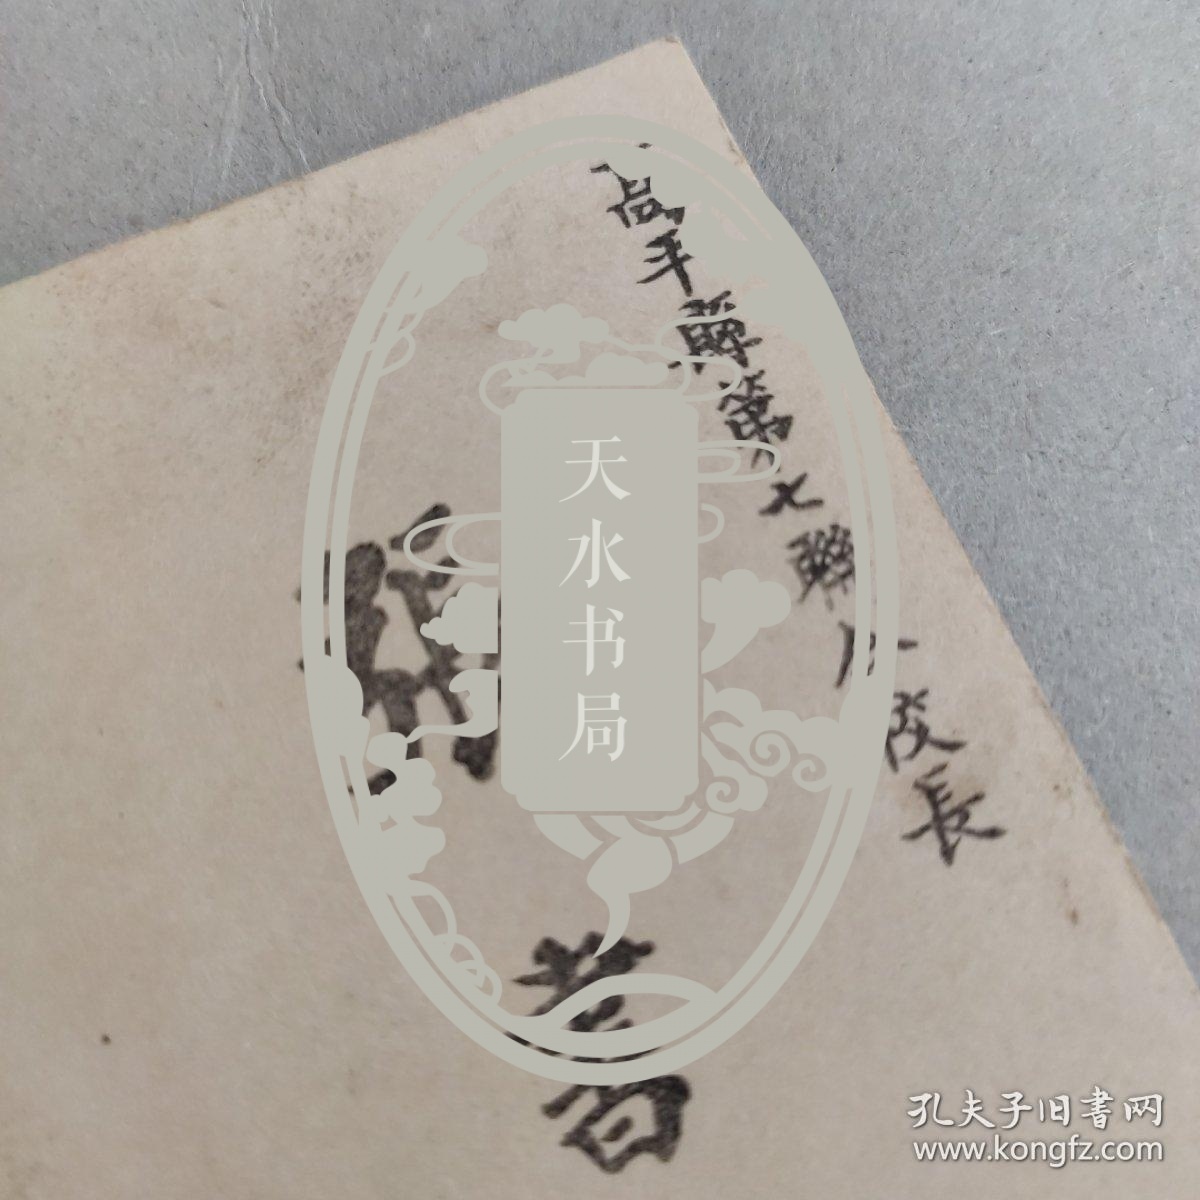 高平縣第七聯合校長
著
天水书局
孔夫子旧書网
www.kongfz.com